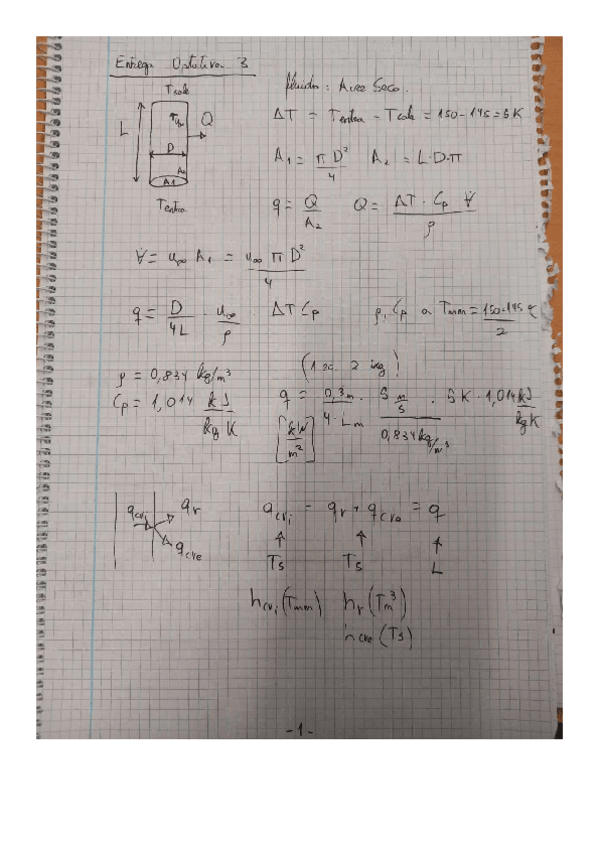 Entrega Optativa 3
Tsale
L
u∞
Q
D
A2
A1
Tentra
Aire Seco.
ΔT = Tentra - Tsale = 150-145=5K
A1 = πD²/4 A2 = L·D·π
q = Q/A2 Q = ΔT · Cp ∀/ρ
∀ = u∞ A1 = u∞ π D²/4
q = D/4L · u∞/ρ ΔT Cp ρ, Cp a Tmm = 150-145/2
ρ = 0,834 kg/m³
Cp = 1,014 kJ/kg K
q = 0,3m/4·Lm · 5 m/s/0,834 kg/m³ · 5K · 1,014 kJ/kgK
[kW/m²]
qcvi qr
qcve
qcvi = qr + qcve = q
↑ ↑ ↑
Ts Ts L
hcvi(Tmm) hr(Tm³)
hcve(Ts)
-1-